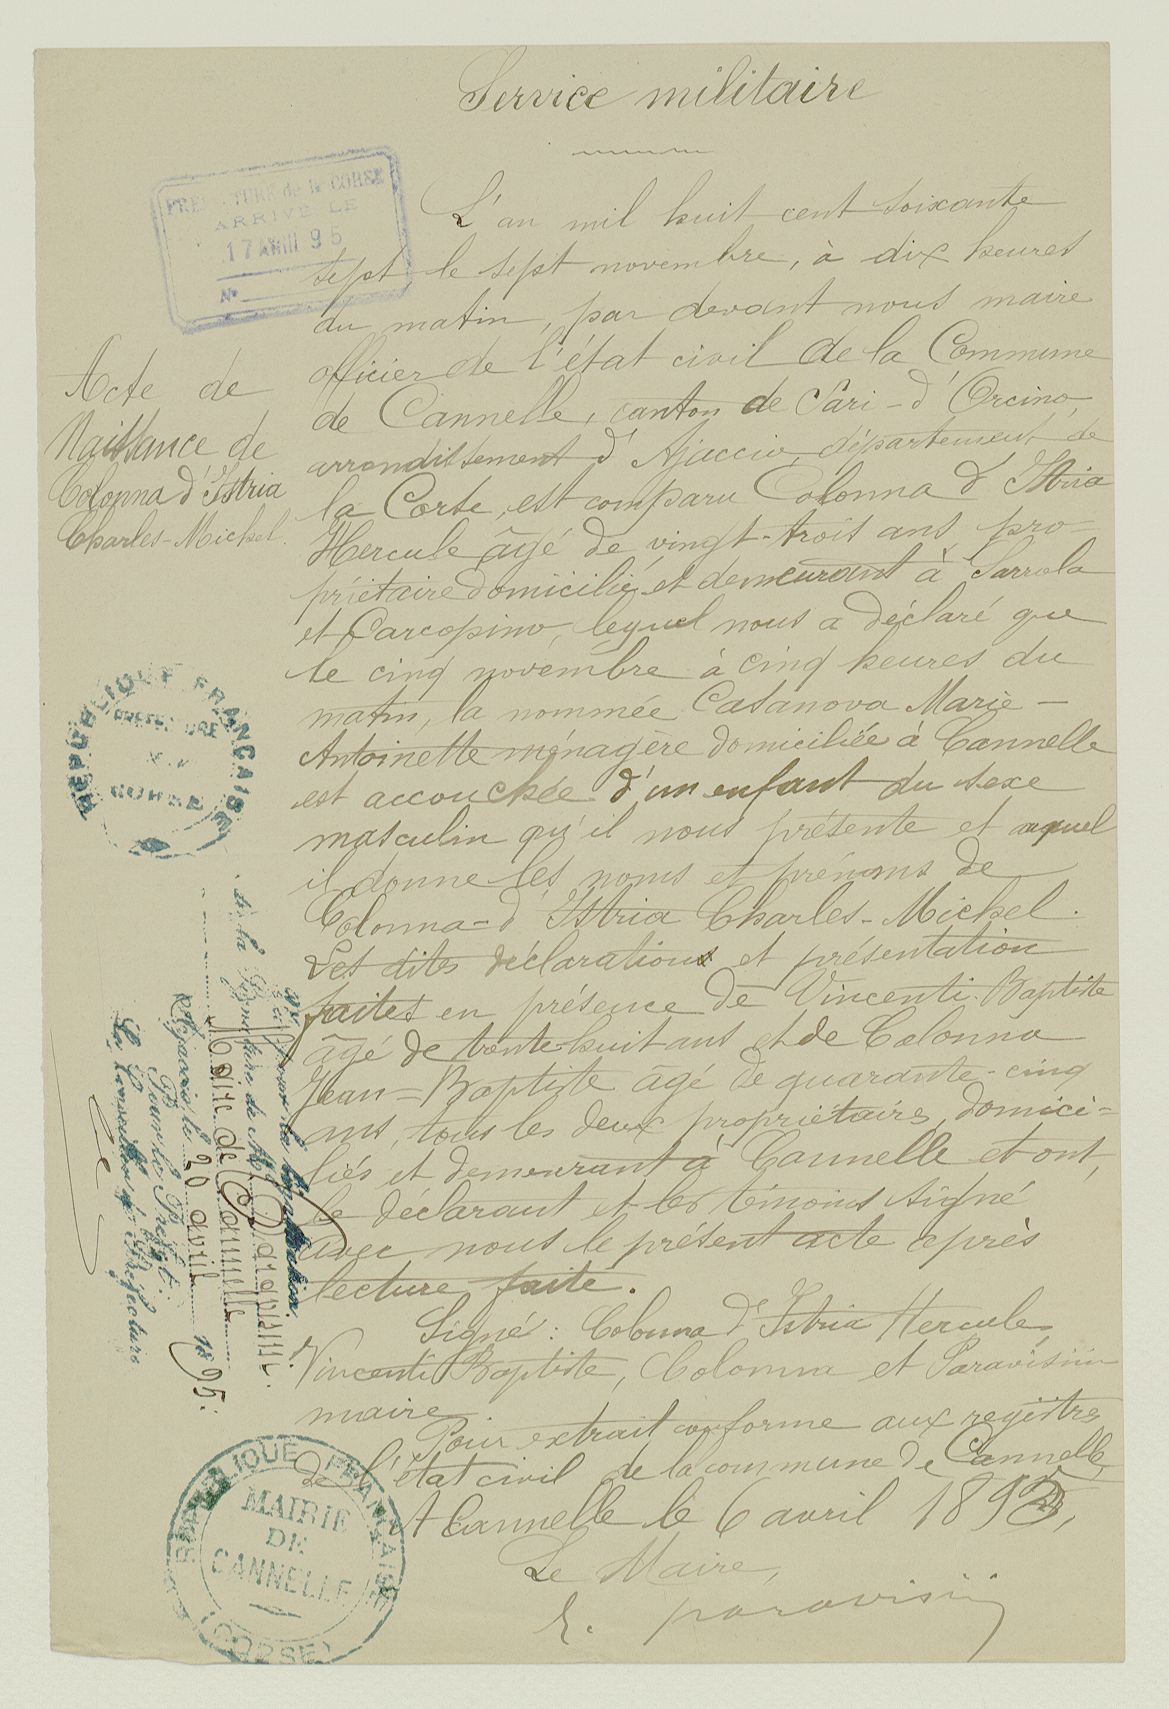 Service militaire
PREFECTURE de la CORSE
ARRIVÉ LE
17 AVRIL 95
No
Acte de
Naissance de
Colonna d'Istria
Charles-Michel.
L'an mil huit cent soixante
sept le sept novembre, à dix heures
du matin, par devant nous maire
officier de l'état civil de la Commune
de Cannelle, canton de Sari-d'Orcino,
arrondissement d'Ajaccio, département de
la Corse, est comparu Colonna d'Istria
Hercule âgé de vingt-trois ans, pro-
priétaire domicilié et demeurant à Sarrola
et Carcopino, lequel nous a déclaré que
le cinq novembre à cinq heures du
matin, la nommée Casanova Marie-
Antoinette ménagère domiciliée à Cannelle
est accouchée d'un enfant du sexe
masculin qu'il nous présente et auquel
il donne les noms et prénoms de
Colonna-d'Istria Charles-Michel.
Les dites déclarations et présentation
faites en présence de Vincenti Baptiste
âgé de trente-huit ans et de Colonna
Jean-Baptiste âgé de quarante-cinq
ans, tous les deux propriétaires, domici-
liés et demeurant à Cannelle et ont,
le déclarant et les témoins signé
avec nous le présent acte après
lecture faite.
Signé: Colonna d'Istria Hercule,
Vincenti Baptiste, Colonna et Paravisini
maire.
Pour extrait conforme aux registres
de l'état civil de la commune de Cannelle,
A Cannelle le 6 avril 1895,
Le Maire,
E. Paravisini
REPUBLIQUE FRANCAISE
PREFECTURE
CORSE
Vu pour la légalisation
de la signature de M. Paravisini.
Maire de Cannelle
Ajaccio, le 20 avril 1895.
Pour le Préfet:
Le Conseiller de Préfecture
REPUBLIQUE FRANCAISE
MAIRIE
DE
CANNELLE
(CORSE)